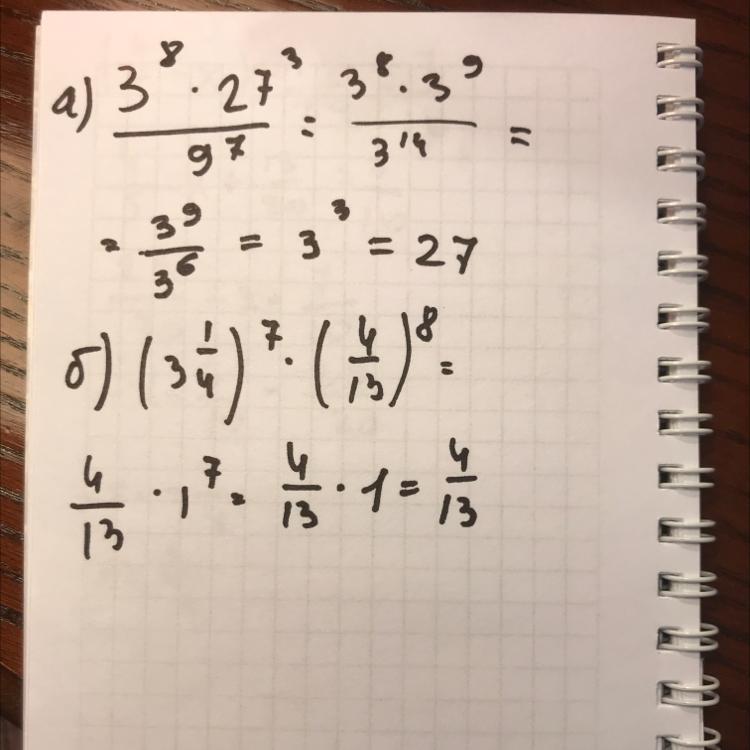 а) 3⁸ · 27³ / 9⁷ = 3⁸ · 3⁹ / 3¹⁴ =
= 3⁹ / 3⁶ = 3³ = 27
б) (3 1/4)⁷ · (4/13)⁸ =
4/13 · 1⁷ = 4/13 · 1 = 4/13